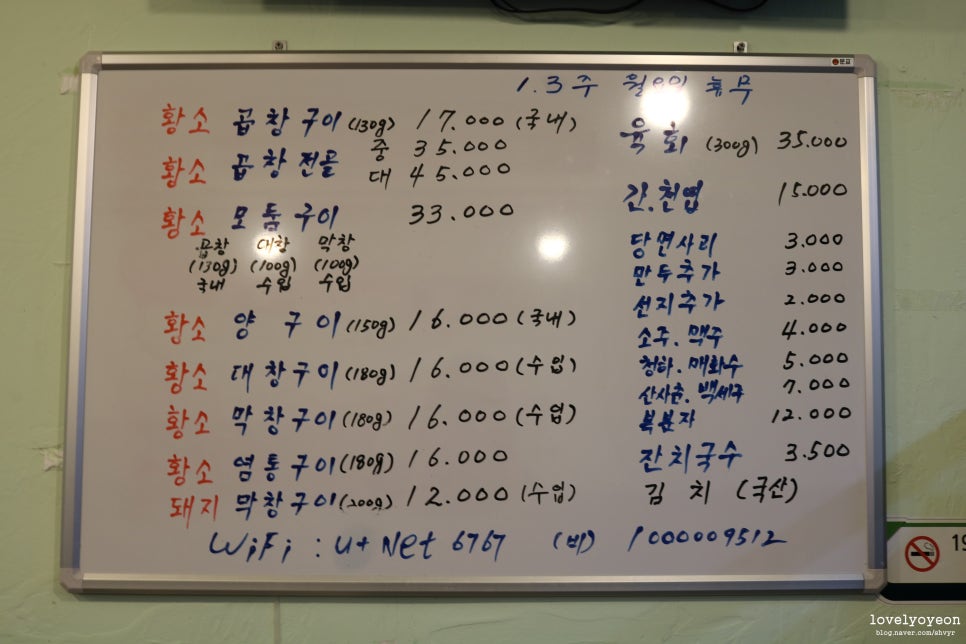 문교
1.3주 월요일 휴무
황소 곱창구이 (130g) 17.000 (국내)
황소 곱창전골 중 35.000
대 45.000
황소 모둠구이 33.000
곱창 대창 막창
(130g) (100g) (100g)
국내 수입 수입
황소 양 구이 (150g) 16.000 (국내)
황소 대창구이 (180g) 16.000 (수입)
황소 막창구이 (180g) 16.000 (수입)
황소 염통구이 (180g) 16.000
돼지 막창구이 (200g) 12.000 (수입)
육회 (300g) 35.000
간.천엽 15.000
당면사리 3.000
만두추가 3.000
선지추가 2.000
소주.맥주 4.000
청하.매화수 5.000
산사춘.백세주 7.000
복분자 12.000
잔치국수 3.500
김치 (국산)
WiFi : U+ Net 6767 (비) 1000009512
19
lovelyoyeon
blog.naver.com/shvyr